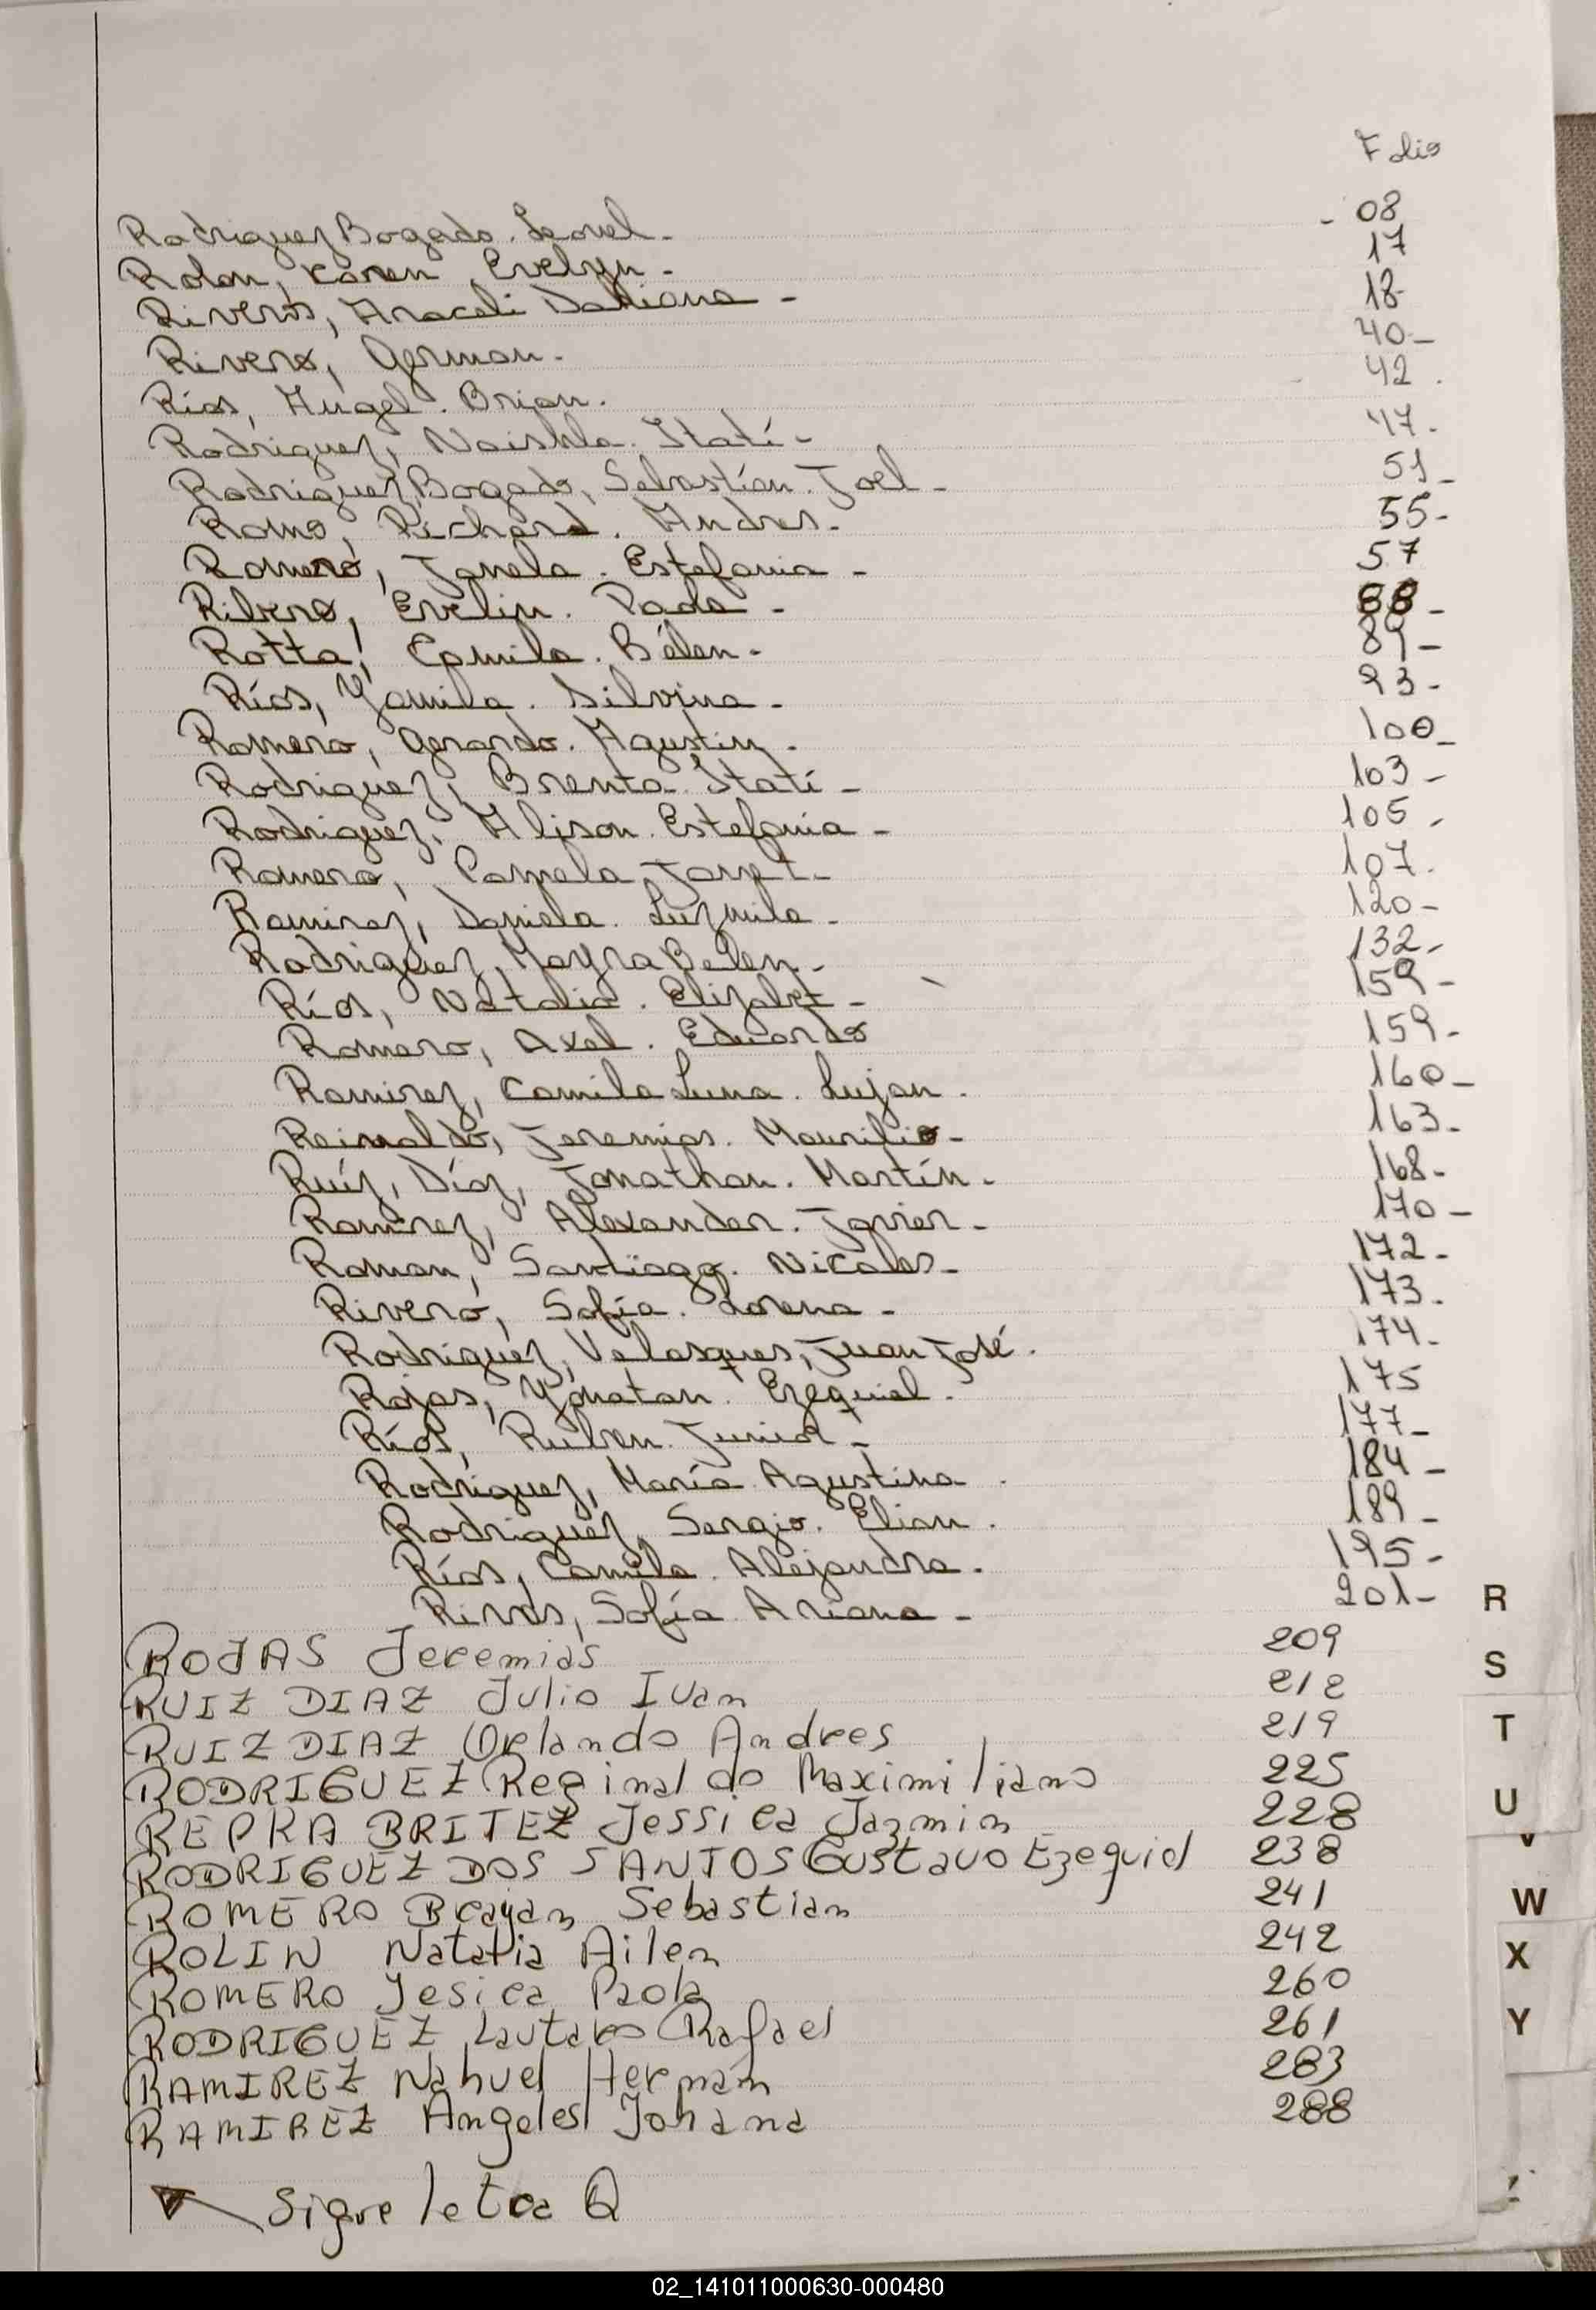 Folio
Rodriguez Bogado. Leonel. - 08
Rolon, Karen Evelyn - 17
Riveros, Araceli Dahiana - 18
Rivero, German. 40-
Rios, Angel. Brian. 42
Rodriguez, Naishla. Itatí - 47.
Rodriguez, Bogado, Sebastían. Joel - 51-
Romo, Richard. Andres. 55-
Romero, Janela. Estefania - 57
Ribero, Evelin. Paola - 88-
Rotta, Camila. Bélen - 89-
Ríos, Yamila. Silvina - 93-
Romero, Gerardo. Agustin. 100-
Rodriguez, Brenta. Itatí - 103-
Rodriguez, Alison. Estefania - 105-
Romero, Pamela Janet - 107.
Ramirez, Daniela. Luzmila - 120-
Rodriguez, Mayra Belen - 132-
Ríos, Natalia. Elizabet - 159-
Romero, Axel. Eduardo 159-
Ramirez, Camila Luna. Lujan. 160-
Reinaldo, Jeremias. Mauricio - 163-
Ruíz, Díaz, Jonathan. Martín. 168-
Ramirez, Alexander. Javier - 170-
Roman, Santiago. Nicolas - 172-
Rivero, Sofía. Lorena - 173.
Rodriguez, Velasques, Juan José. 174-
Rojas, Yonatan. Ezequiel. 175
Ríos, Ruben. Junior - 177-
Rodriguez, María Agustina 184-
Rodriguez, Sergio. Elian. 189-
Ríos, Camila. Alejandra. 195-
Rivas, Sofía Ariana - 201-
ROJAS Jeremias 209
RUIZ DIAZ Julio Ivan 212
RUIZ DIAZ Orlando Andres 219
RODRIGUEZ Reginaldo Maximiliano 225
REPKA BRITEZ Jessica Jazmin 228
RODRIGUEZ DOS SANTOS Gustavo Ezequiel 238
ROMERO Brayan Sebastian 241
ROLIN Natalia Ailen 242
ROMERO Jesica Paola 260
RODRIGUEZ Lautaro Rafael 261
RAMIREZ Nahuel Hernán 283
RAMIREZ Angeles Johana 288
Sigue letra Q
R
S
T
U
V
W
X
Y
Z
02_141011000630-000480